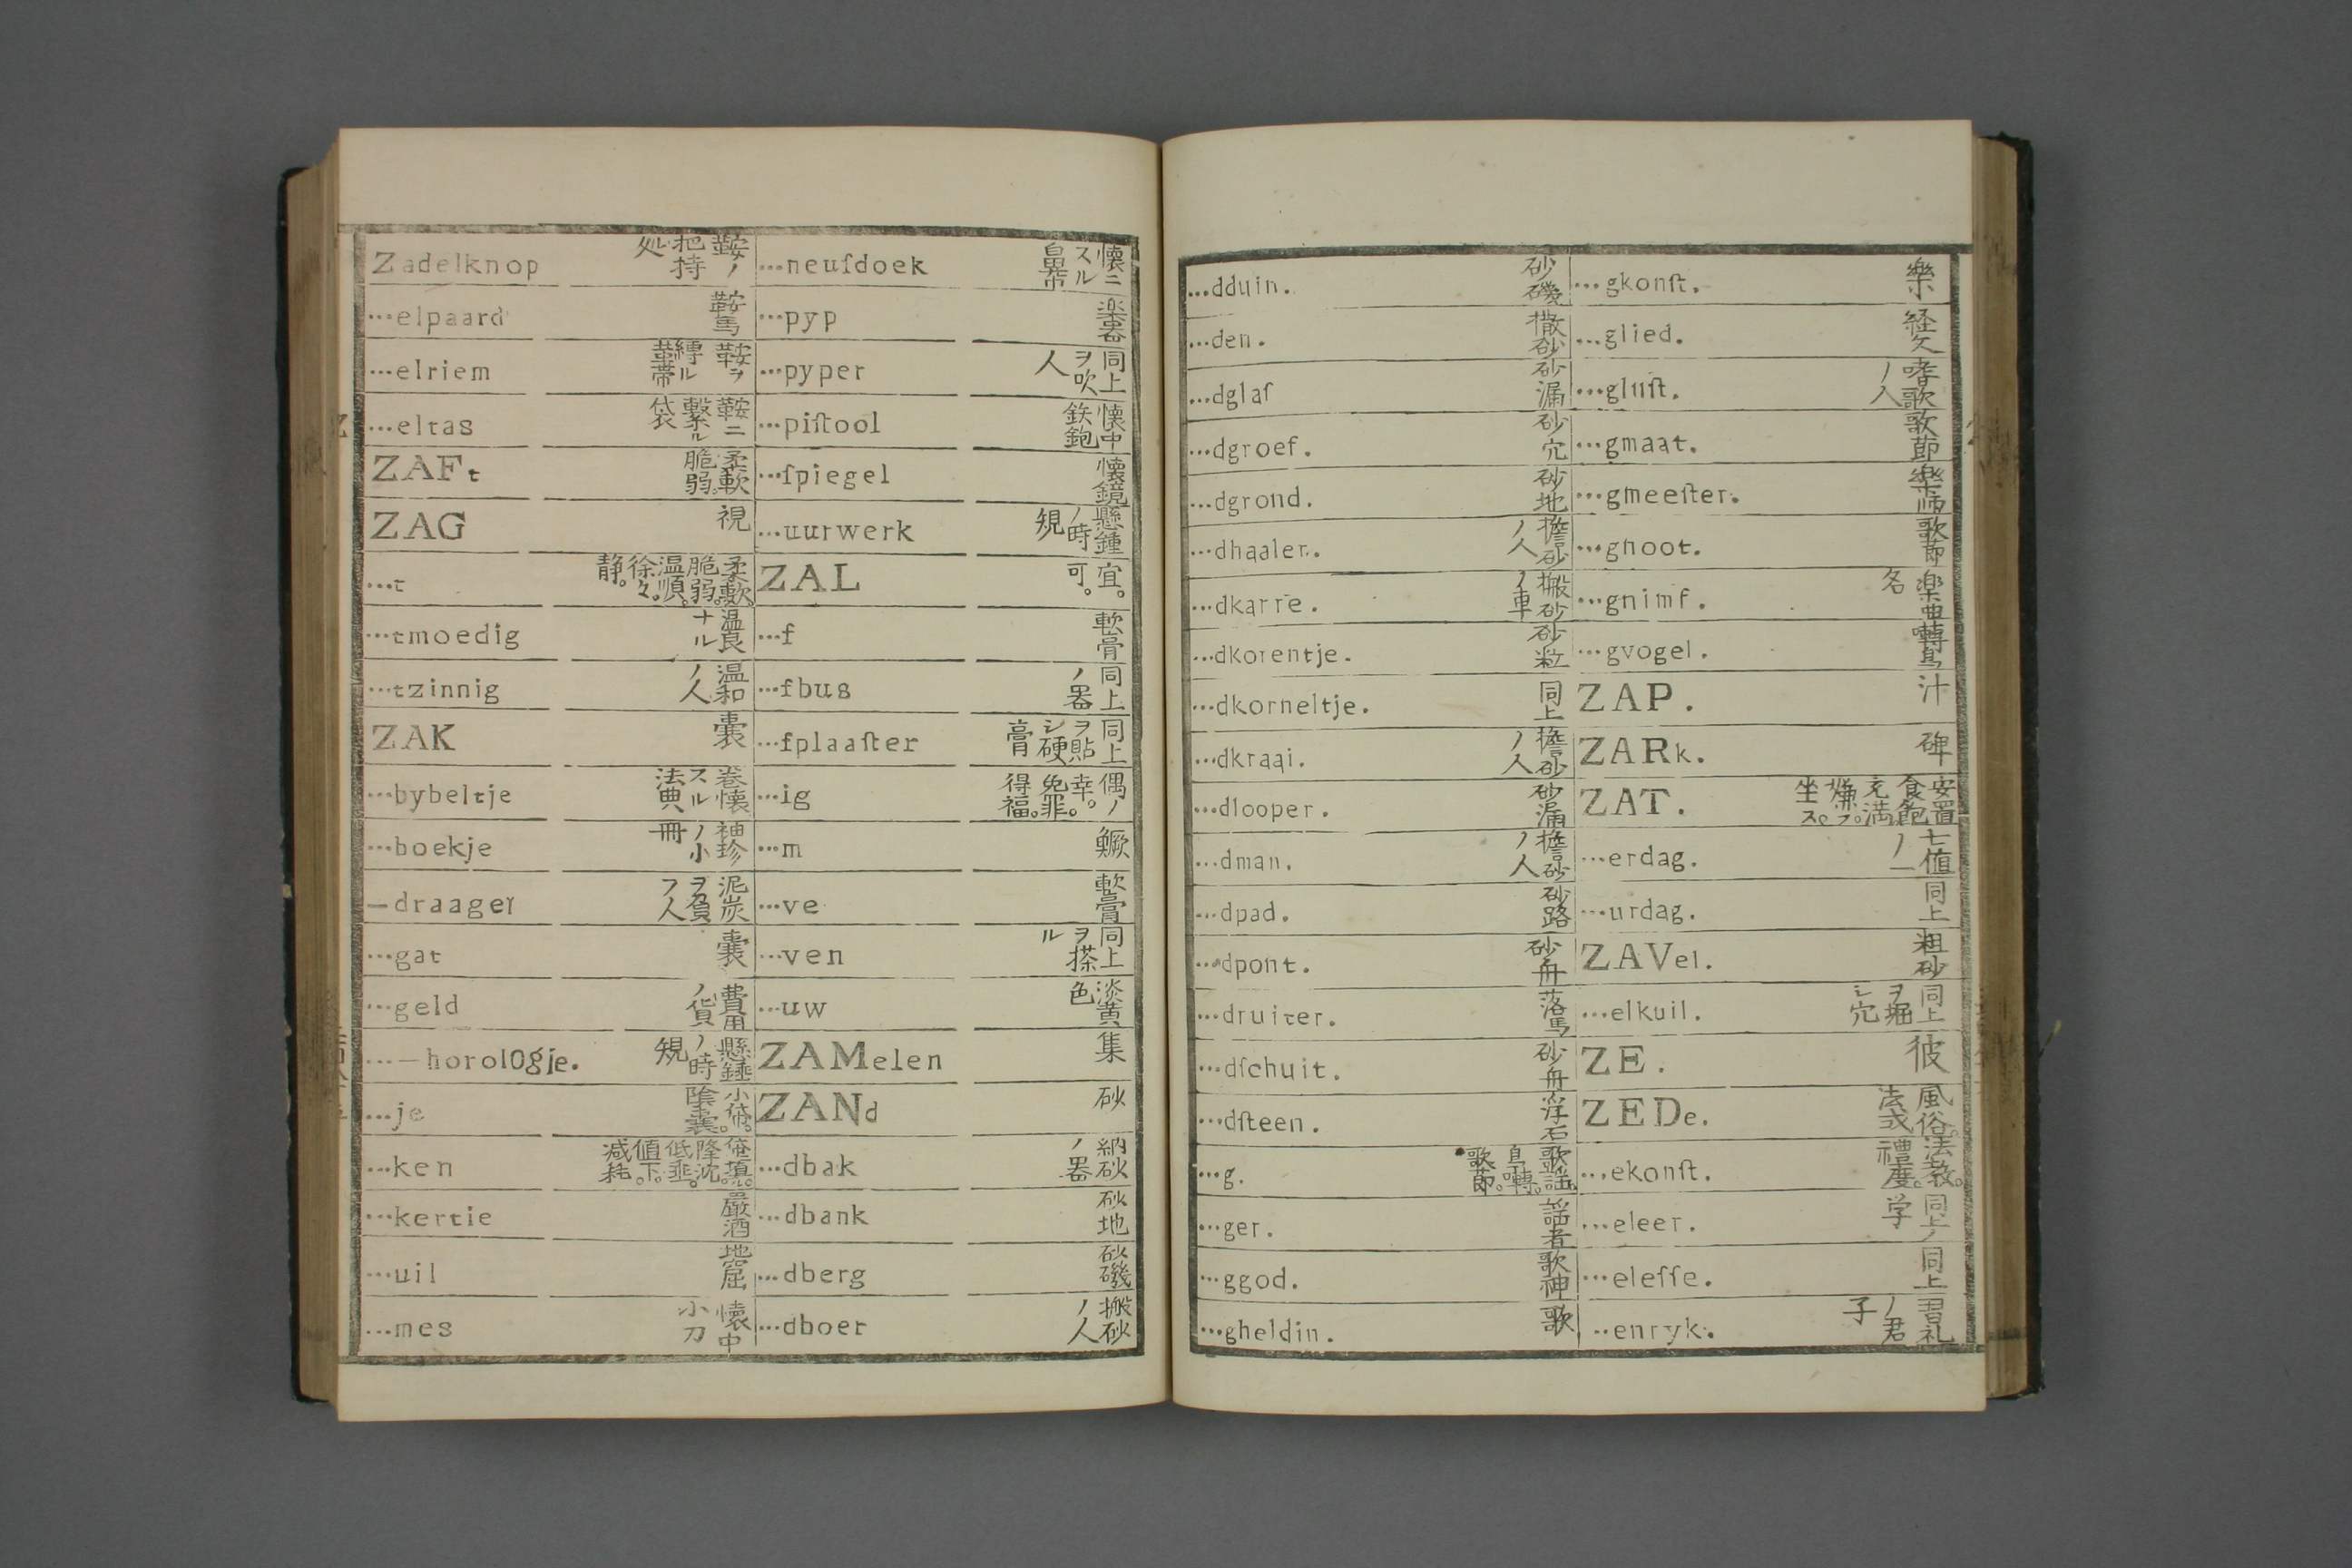 Zadelknop 鞍ノ把持処
…elpaard 鞍馬
…elriem 鞍ヲ縛ル革帯
…eltas 鞍ニ繋ル袋
ZAFt 柔軟脆弱。
ZAG 視
…t 柔軟。脆弱。温順。徐々。静。
…tmoedig 温良ナル
…tzinnig 温和ノ人
ZAK 嚢
…bybeltje 巻懐スル法典
…boekje 袖珍ノ小冊
—draager 泥炭ヲ負フ人
…gat 嚢
…geld 費用ノ貨
…—horologje. 懸錘ノ時規
…je 小袋。陰嚢。
…ken 降沈。低垂。値下。減耗。
…kertie 嚴酒
…uil 地窟
…mes 懐中小刀
…neuſdoek 懐ニスル鼻帋
…pyp 楽器
…pyper 同上ヲ吹人
…piſtool 懐中鉄鉋
…ſpiegel 懐鏡
…uurwerk 懸鍾ノ時規
ZAL 宜。可。
…f 軟膏
…fbus 同上ノ器
…fplaaſter 同上ヲ貼シ硬膏
…ig 偶ノ幸。免罪。得福。
…m 鱖
…ve 軟膏
…ven 同上ヲ搽ル
…uw 淡黄色
ZAMelen 集
ZANd 砂
…dbak 納砂ノ器
…dbank 砂地
…dberg 砂磯
…dboer 搬砂ノ人
…dduin. 砂磯
…den. 撒砂
…dglaſ 砂漏
…dgroef. 砂穴
…dgrond. 砂地
…dhaaler. 擔砂ノ人
…dkarre. 搬砂ノ車
…dkorentje. 砂粒
…dkorneltje. 同上
…dkraai. 擔砂ノ人
…dlooper. 砂漏
…dman. 擔砂ノ人
…dpad. 砂路
…dpont. 砂舟
…druiter. 落馬
…dſchuit. 砂舟
…dſteen. 浮石
…g. 歌謡。鳥囀。歌節。
…ger. 謡者
…ggod. 歌神
…gheldin. 歌
…gkonſt. 樂
…glied. 経文
…gluſt. 嗜歌ノ人
…gmaat. 歌節
…gmeeſter. 樂師
…gnoot. 歌節
…gnimf. 楽曲名
…gvogel. 囀鳥
ZAP. 汁
ZARk. 碑
ZAT. 安置食飽。充満。嫌フ。坐ス。
…erdag. 七値ノ一
…urdag. 同上
ZAVel. 粗砂
…elkuil. 同上ヲ堀シ穴
ZE. 彼
ZEDe. 風俗。法式
…ekonſt. 法教。禮度。
…eleer. 同上ノ学
…eleſſe. 同上
…enryk. 習礼ノ君子